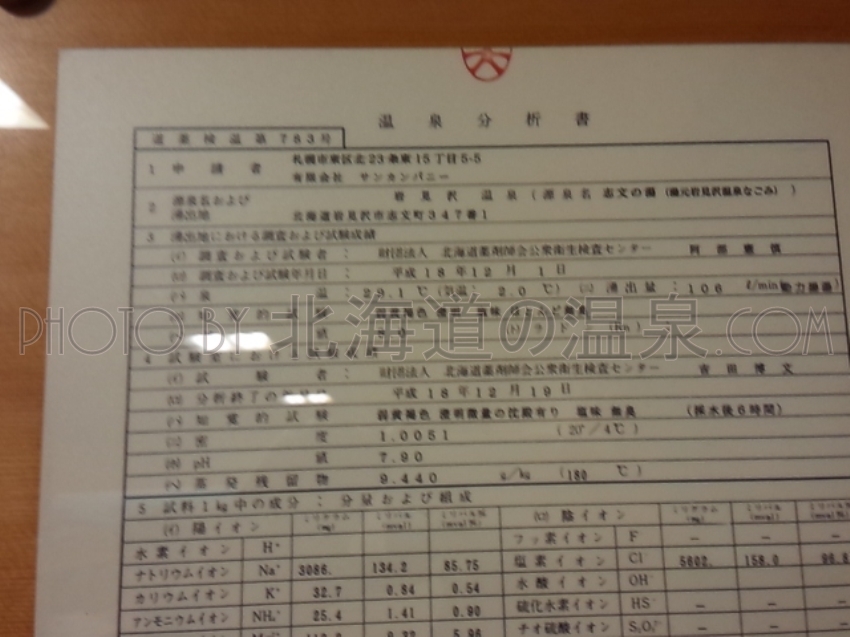 温泉分析書
道薬検温第783号
1 申請者 札幌市東区北23条東15丁目5-5
有限会社 サンカンパニー
2 源泉名および湧出地 岩見沢 温泉 (源泉名 志文の湯 (湯元岩見沢温泉なごみ) )
北海道岩見沢市志文町347番1
3 湧出地における調査および試験成績
(イ) 調査および試験者 : 財団法人 北海道薬剤師会公衆衛生検査センター 阿部
(ロ) 調査および試験年月日 : 平成18年12月1日
(ハ) 泉温 : 29.1℃ (気温: 2.0℃) (ニ) 湧出量 : 106 ℓ/min 動力揚湯
弱黄褐色 澄明 塩味 ほとんど無臭
(Rn)
PHOTO BY 北海道の温泉.COM
4 試験室における試験成績
(イ) 試験者 : 財団法人 北海道薬剤師会公衆衛生検査センター 吉田博文
(ロ) 分析終了の年月日 平成18年12月19日
(ハ) 知覚的試験 弱黄褐色 澄明微量の沈殿有り 塩味 無臭 (採水後6時間)
(ニ) 密度 1.0051 (20°/4℃)
(ホ) pH値 7.90
(ヘ) 蒸発残留物 9.440 g/kg (180℃)
5 試料1kg中の成分 : 分量および組成
(イ) 陽イオン ミリグラム (mg) ミリバル (mval) ミリバル% (mval%) (ロ) 陰イオン ミリグラム (mg) ミリバル (mval) ミリバル% (mval%)
水素イオン H⁺ フッ素イオン F⁻ — —
ナトリウムイオン Na⁺ 3086. 134.2 85.75 塩素イオン Cl⁻ 5602. 158.0 96.8
カリウムイオン K⁺ 32.7 0.84 0.54 水酸イオン OH⁻
アンモニウムイオン NH₄⁺ 25.4 1.41 0.90 硫化水素イオン HS⁻ — — —
チオ硫酸イオン S₂O₃